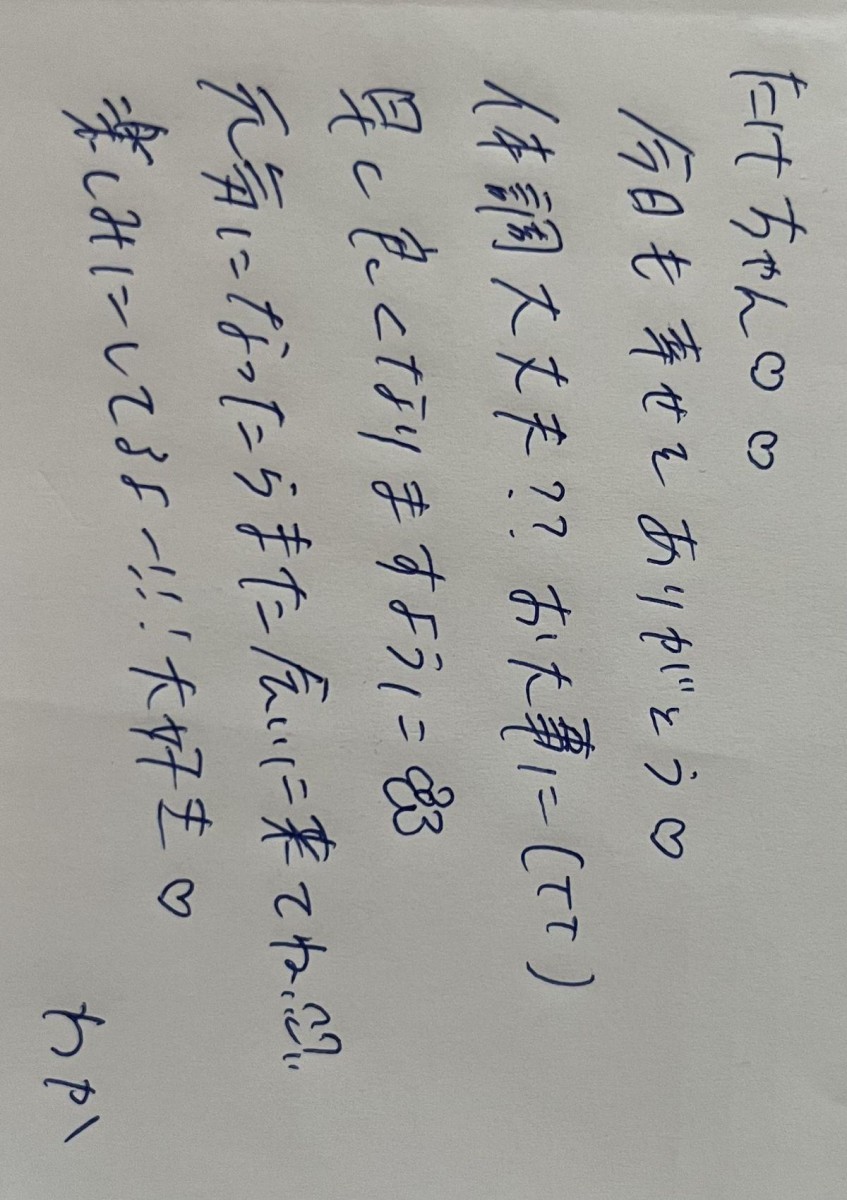 たけちゃん♡♡
今日も幸せをありがとう♡
体調大丈夫?? お大事に(TT)
早く良くなりますように
元気になったらまた会いに来てね
楽しみにしてるよー!!! 大好き♡